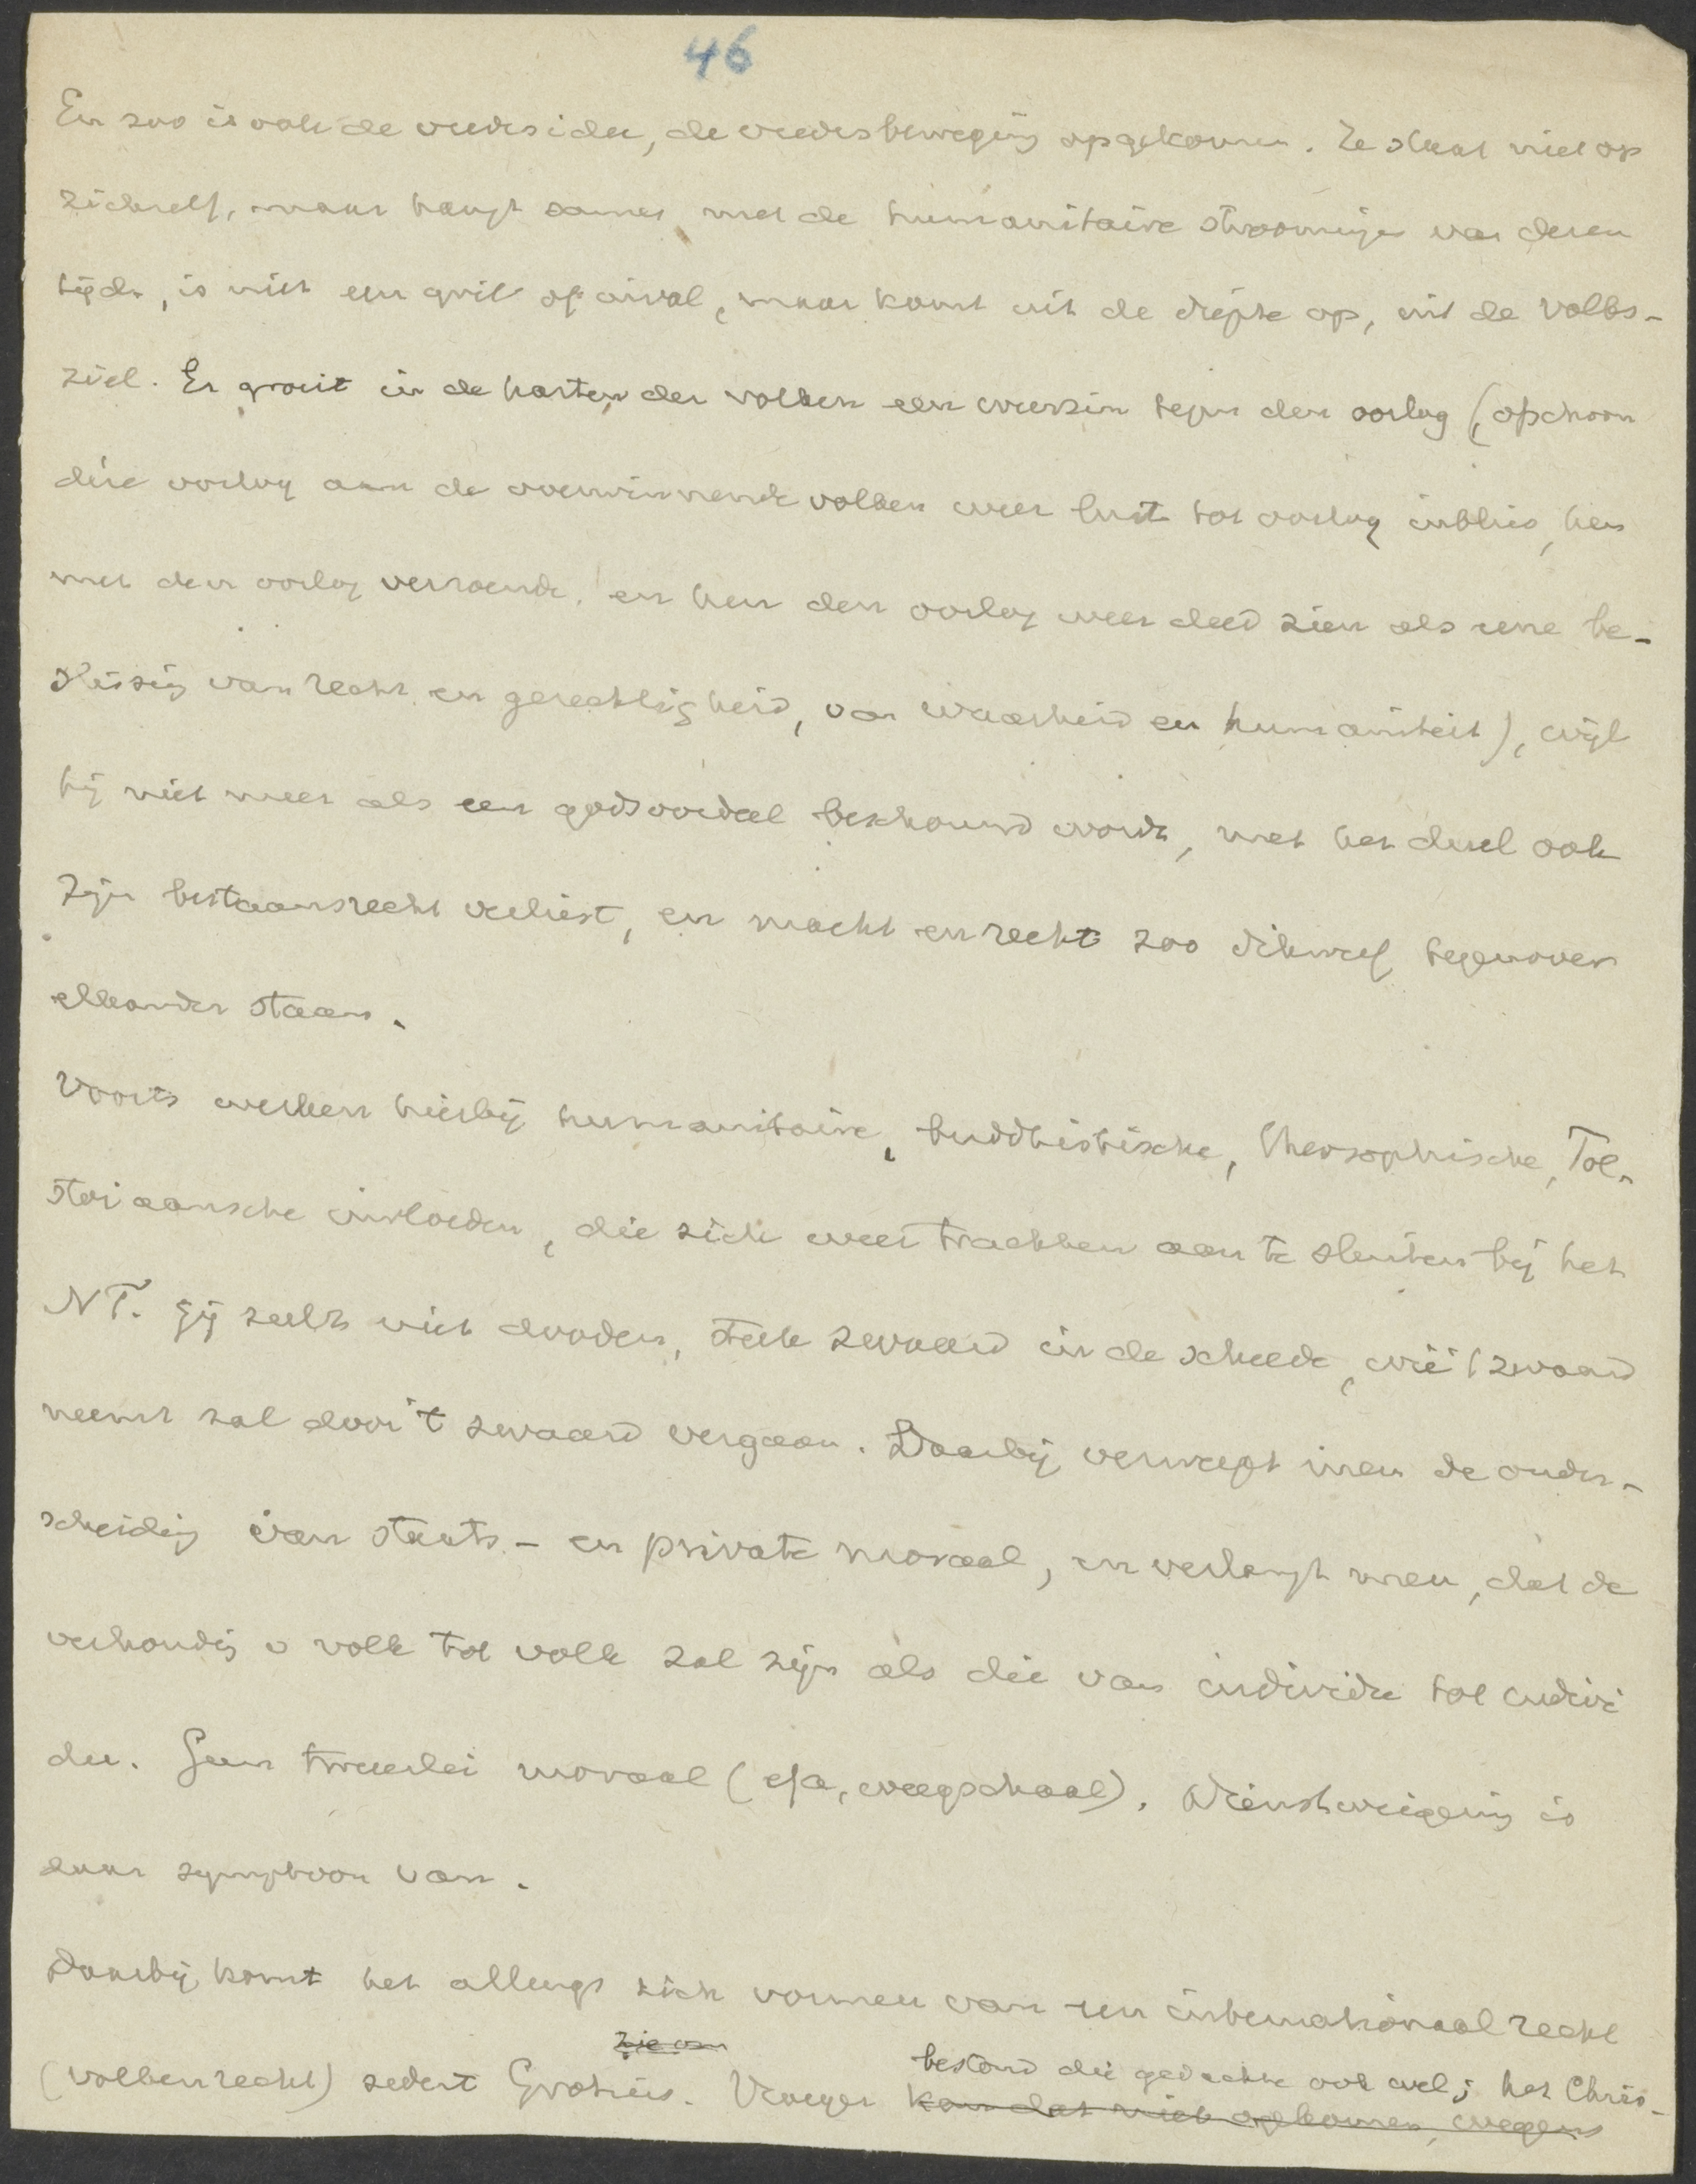 46
En zoo is ook de vredesidee, de vredesbeweging opgekomen. Ze staat niet op
zichzelf, maar hangt samen met de humanitaire stroomingen van dezen
tijd, is niet een gril of inval, maar komt uit de diepte op, uit de volks-
ziel. Er groeit in de harten der volken een weerzin tegen den oorlog (ofschoon
deze oorlog aan de overwinnende volken weer lust tot oorlog inblies, hen
met den oorlog verzoende, en hen den oorlog weer deed zien als eene be-
slissing van recht en gerechtigheid, van waarheid en humaniteit), wijl
hij niet meer als een godsoordeel beschouwd wordt, met het duel ook
zijn bestaansrecht verliest, en macht en recht zoo dikwerf tegenover
elkander staan.
Voorts werken hierbij humanitaire, buddhistische, theosophische, Tol-
stoiaansche invloeden, die zich weer trachten aan te sluiten bij het
NT. Gij zult niet dooden, steek zwaard in de scheede, wie 't zwaard
neemt zal door 't zwaard vergaan. Daarbij verwerpt men de onder-
scheiding van staats- en private moraal, en verlangt men, dat de
verhouding v volk tot volk zal zijn als die van individu tot indivi
du. Geen tweeërlei moraal (efa, weegschaal). Dienstweigering is
daar symptoon van.
Daarbij komt het allengs zich vormen van een internationaal recht
zie van
(volkenrecht) sedert Grotius. Vroeger bestond die gedachte ook wel; het Chris-
kon dat niet opkomen, wegens